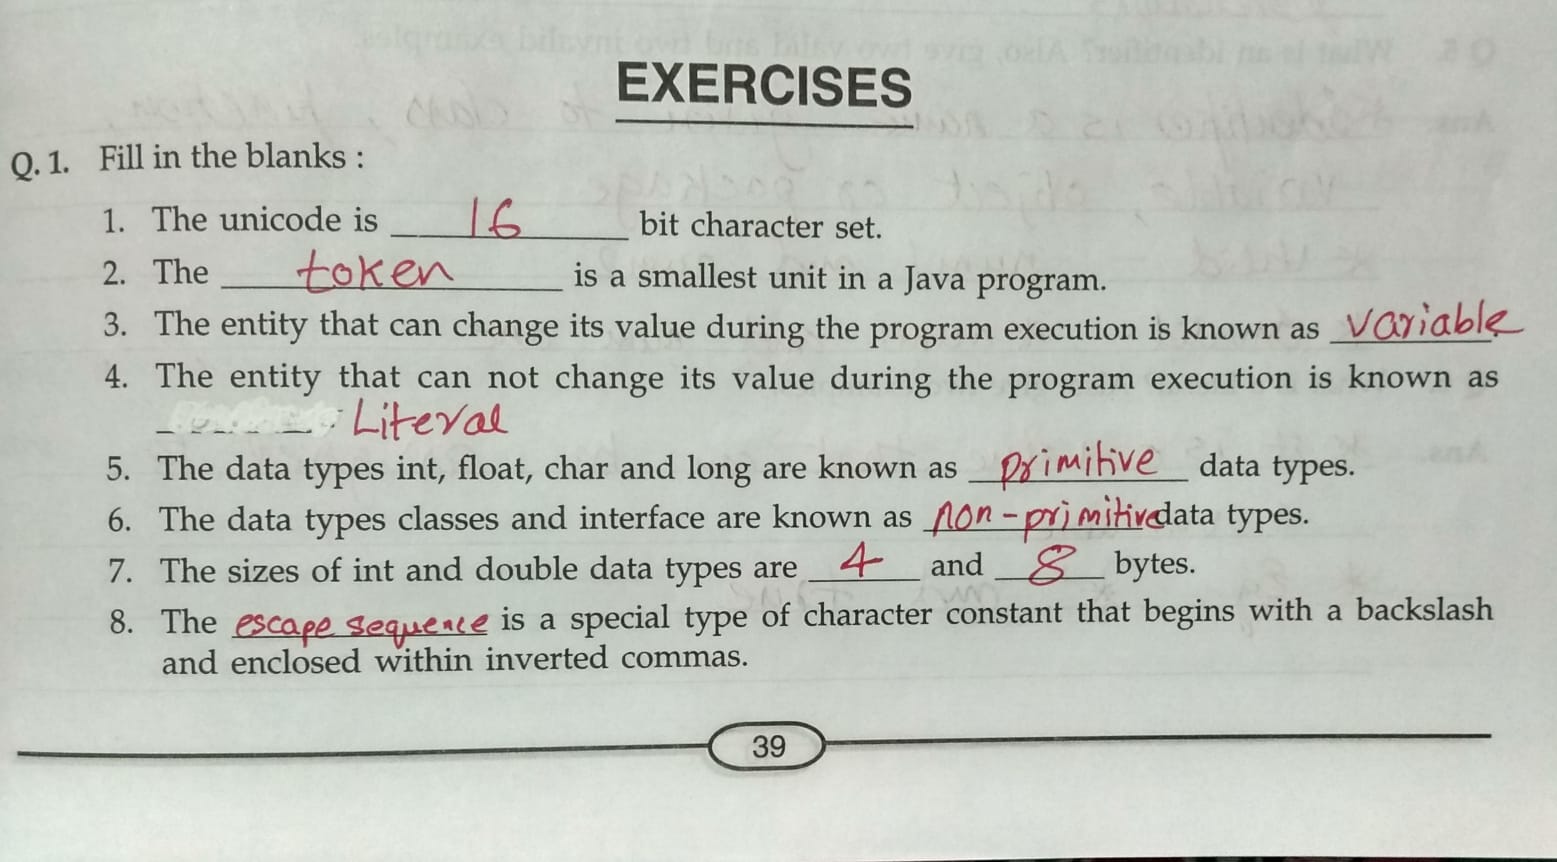 EXERCISES
Q. 1. Fill in the blanks :
1. The unicode is 16 bit character set.
2. The token is a smallest unit in a Java program.
3. The entity that can change its value during the program execution is known as variable.
4. The entity that can not change its value during the program execution is known as
Literal
5. The data types int, float, char and long are known as primitive data types.
6. The data types classes and interface are known as non-primitive data types.
7. The sizes of int and double data types are 4 and 8 bytes.
8. The escape sequence is a special type of character constant that begins with a backslash
and enclosed within inverted commas.
39